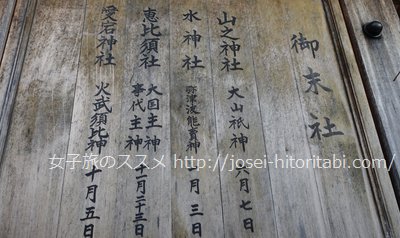 御末社
山之神社 大山祇神 六月七日
水神社 弥津波能賣神 一月三日
恵比須社 大国主神 事代主神 十一月二十三日
愛宕神社 火武須比神 十月五日
女子旅のススメ http://josei-hitoritabi.com/